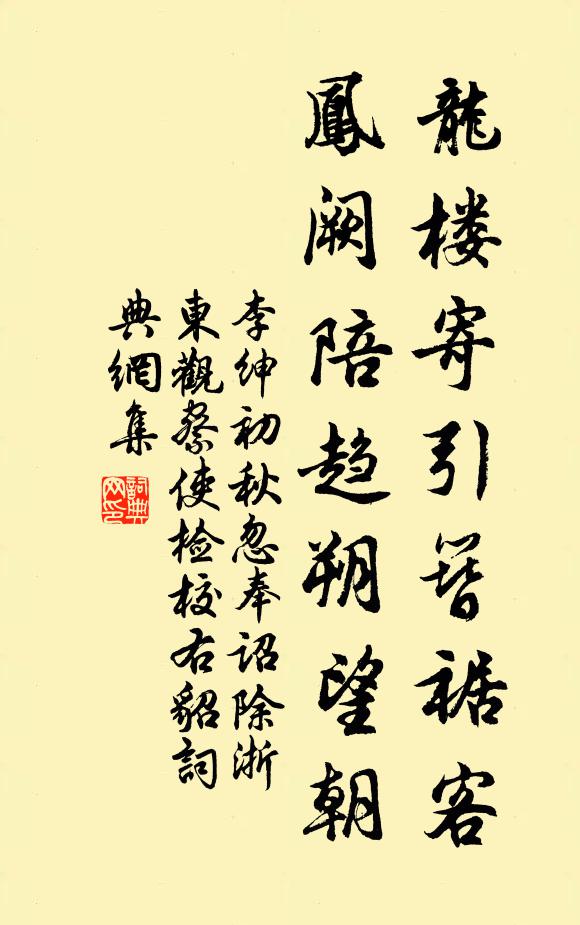 龍楼寄引簪裾客
鳳阙陪趋朔望朝
李绅初秋忽奉诏除浙
東觀察使检校右貂詞
典網集
詞典网印